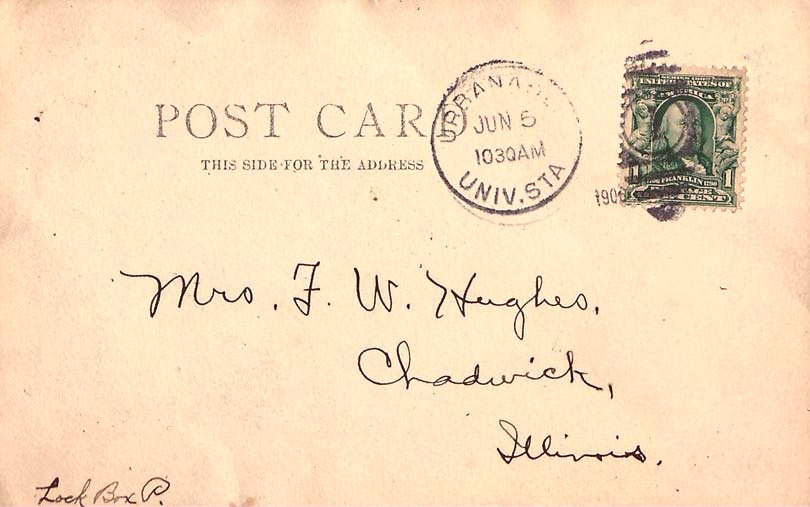 POST CARD
THIS SIDE FOR THE ADDRESS
URBANA
JUN 5
1030AM
UNIV. STA
UNITED STATES OF
AMERICA
FRANKLIN
1 CENT
Mrs. F. W. Hughes,
Chadwick,
Illinois.
Lock Box P.